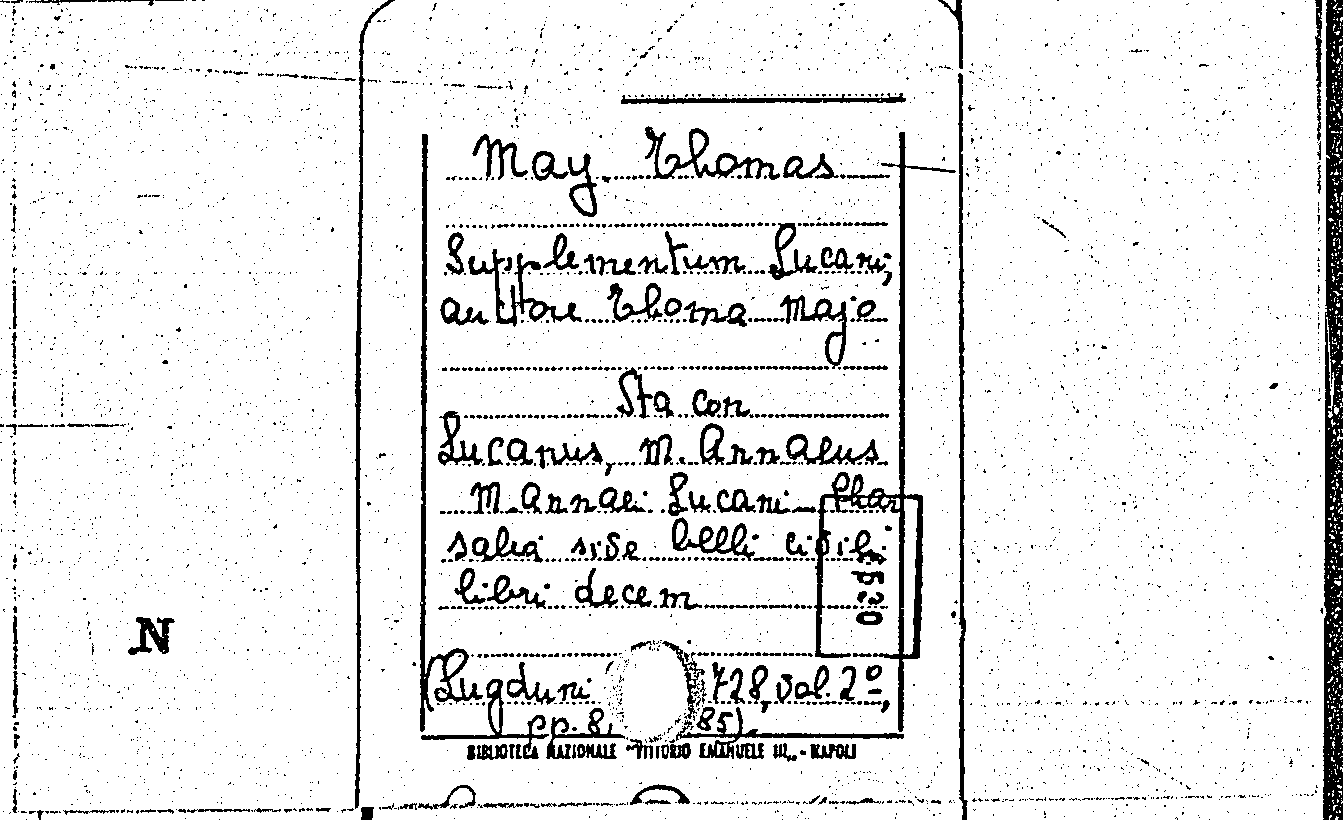 May. Thomas
Supplementum Lucani,
auctore Thoma Majo
Sta con
Lucanus, M. Annaeus
M. Annaei Lucani Phar
salia sive belli civili
libri decem
(Lugduni 728, vol. 2º,
pp. 8, 85).
BIBLIOTECA NAZIONALE "VITTORIO EMANUELE III" - NAPOLI
N